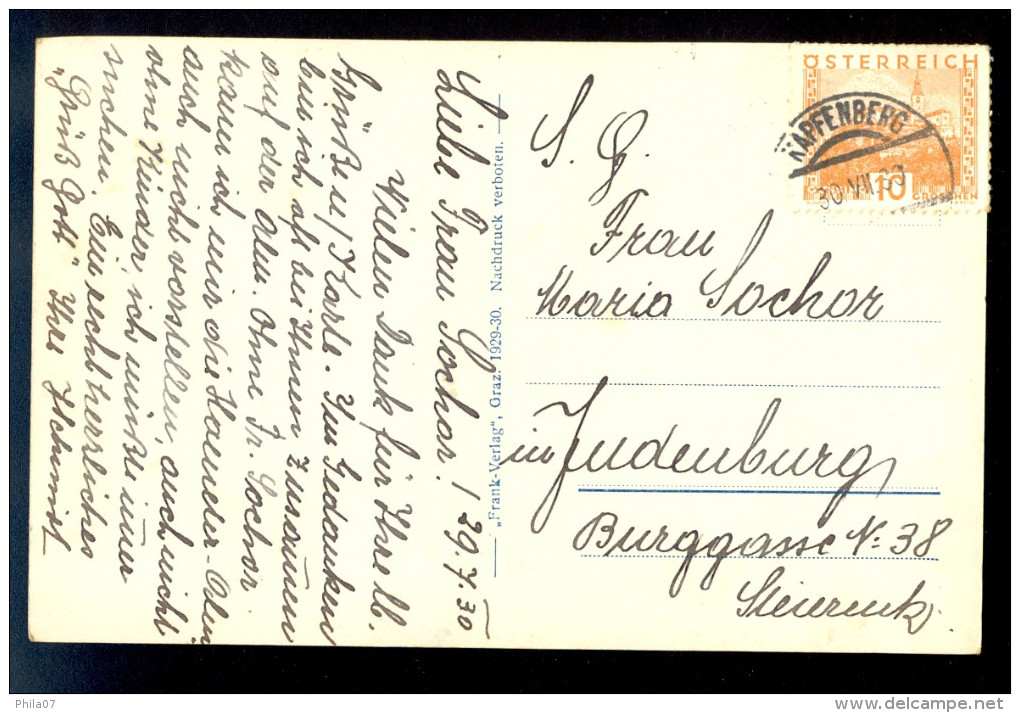 Liebe Frau Sochor! 29.7.30
Vielen Dank für Ihre lb.
Grüße u/ Karte. Im Gedanken
bin ich oft bei Ihnen zusam̄en
auf der Alm. Ohne Fr. Sochor
kann ich mir die Haneder-Alm
auch nicht vorstellen, auch nicht
ohne Kinder ich müßte im̄er
suchen. Ein recht herzliches
„Grüß Gott" Ihre
„Frank-Verlag", Graz. 1929-30. Nachdruck verboten.
ÖSTERREICH
KAPFENBERG
30.VII.30
10
GROSCHEN
S. G.
Frau
Maria Sochor
in Judenburg
Burggasse №. 38
Steiermk.
Phila07
delcampe.net